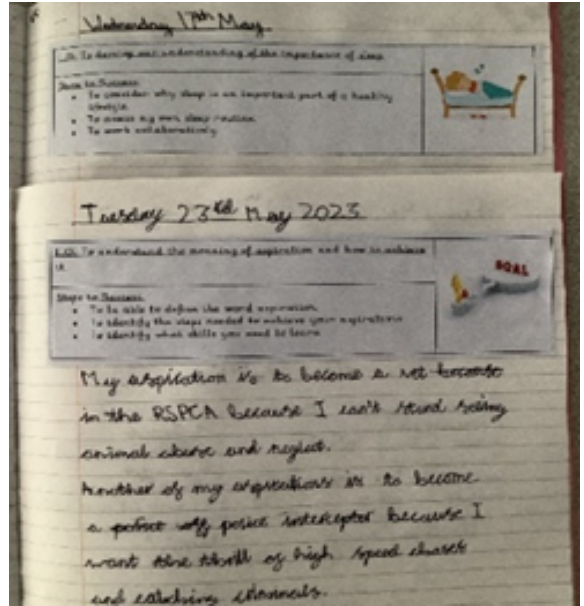 Wednesday 17th May
L.O. To develop our understanding of the importance of sleep
Steps to Success
To consider why sleep is an important part of a healthy
lifestyle
To assess my own sleep routine
To work collaboratively
Tuesday 23rd May 2023
L.O. To understand the meaning of aspiration and how to achieve
it
GOAL
Steps to Success
To be able to define the word aspiration.
To identify the steps needed to achieve your aspirations
To identify what skills you need to learn
My aspiration is to become a vet because
in the RSPCA because I can't stand seeing
animal abuse and neglect.
Another of my aspirations is to become
a police interceptor because I
want the thrill of high speed chases
and catching criminals.